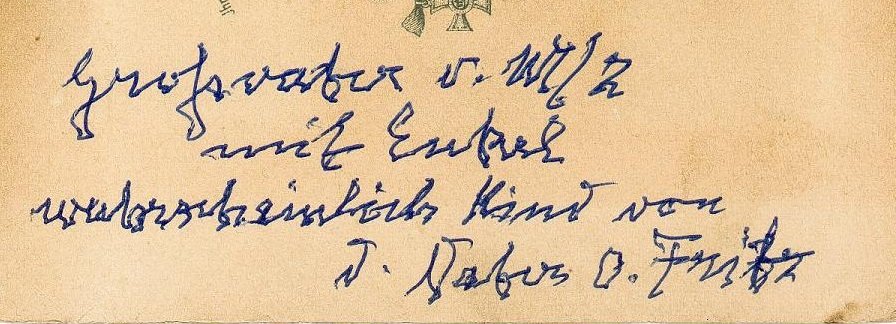 Großvater v. 
mit Enkel
wahrscheinlich Kind von
d. Vater o. Fritz